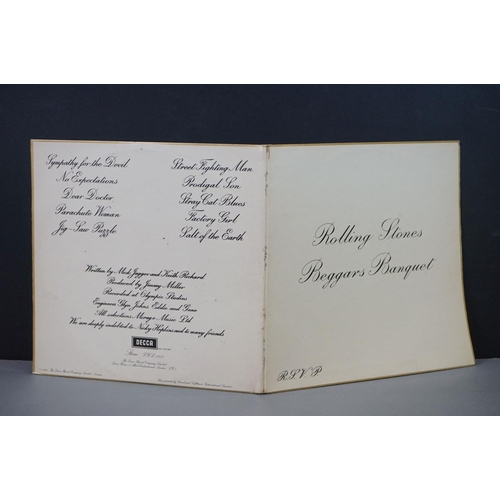 Sympathy for the Devil
No Expectations
Dear Doctor
Parachute Woman
Jig-Saw Puzzle
Street Fighting Man
Prodigal Son
Stray Cat Blues
Factory Girl
Salt of the Earth
Written by Mick Jagger and Keith Richard
Produced by Jimmy Miller
Recorded at Olympic Studios
Engineers Glyn Johns, Eddie and Gene
All selections Mirage Music Ltd
We are deeply indebted to Nicky Hopkins and to many friends
DECCA
Rolling Stones
Beggars Banquet
R.S.V.P.